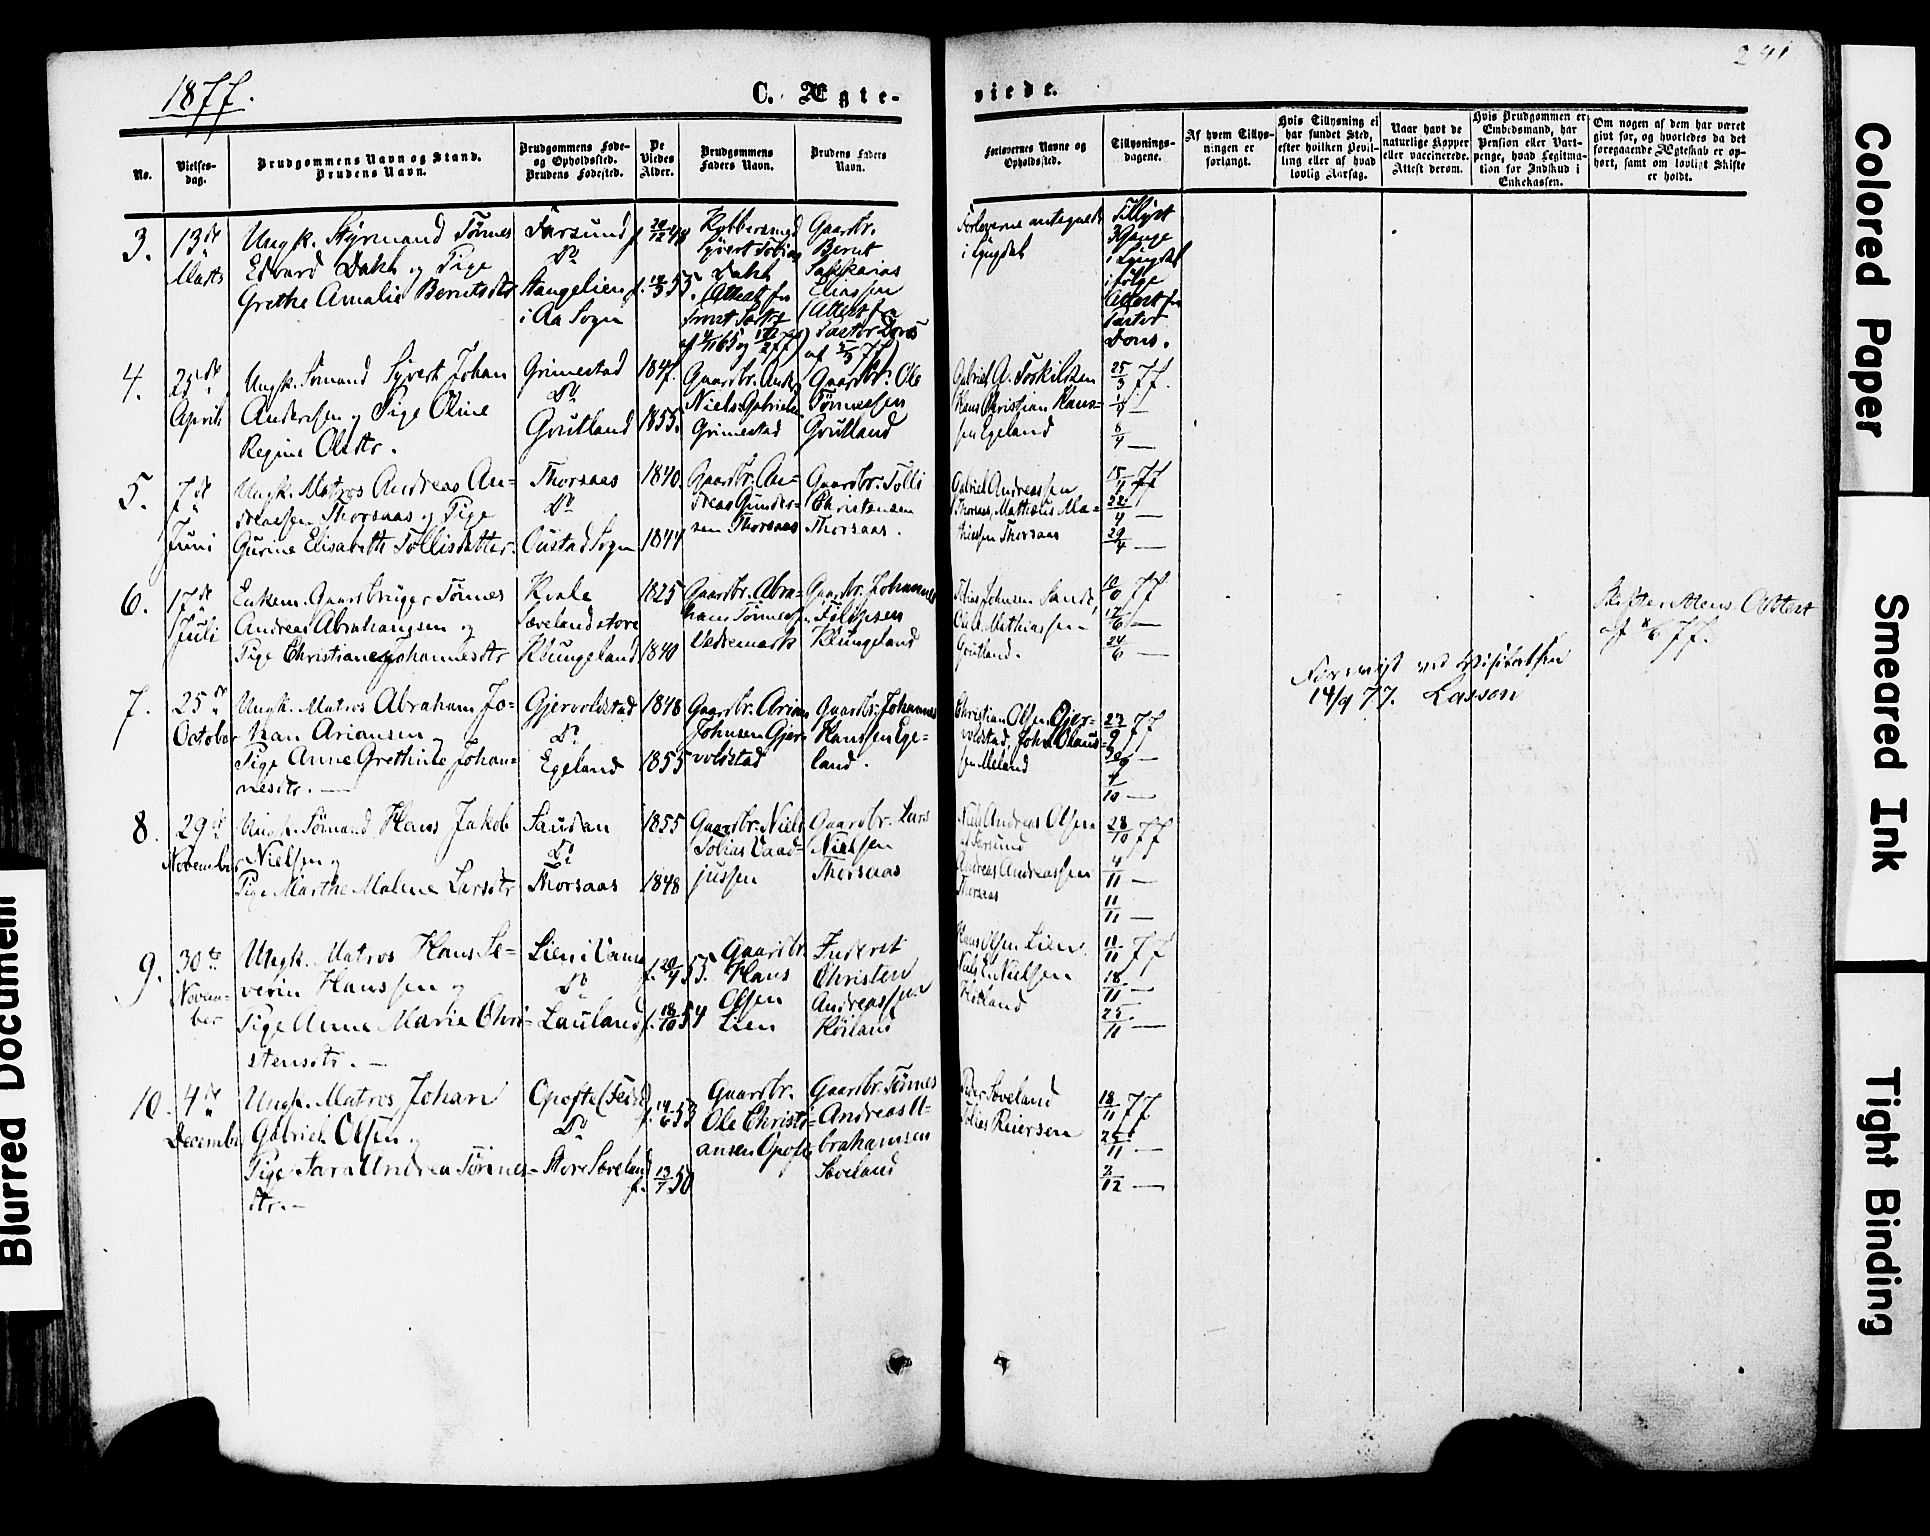 1877.
C. Ægte-
No.
Vielses-
dag.
Brudgommens Navn og Stand.
Brudens Navn.
Brudgommens Føde-
og Opholdssted.
Brudens Fødested.
De
Viedes
Alder.
Brudgommens
Faders Navn.
Brudens Faders
Navn.
3.
13de
Marts
Ungk. Styrmand Tønnes
Edvard Dahl og Pige
Grethe Amalie Berntsdtr
Farsund
Do
Stangelien
i Aa Sogn
f. 20/12 49
f. 14/3 55.
Kobbersmed
Syvert Tobias
Dahl
(Attest fra
Gaardbr.
Bernt
Sakkarias
Eliassen
(Attest fra
Pastor Dons
4.
25de
April
Ungk. Sømand Syvert Johan
Anderssen og Pige Oline
Regine Olsdtr.
Grimestad
Do
Grutland
1847.
1855.
Gaardbr. Anders
Niels Gabrielsen
Grimestad
Gaardbr. Ole
Tønnessen
Grutland
5.
7de
Juni
Ungk. Matros Andreas An-
dreassen Thorsaas og Pige
Gurine Elisabeth Tollisdatter
Thorsaas
Do
Oustad Sogn
1840.
1844
Gaardbr. An-
dreas Gunder-
sen Thorsaas
Gaardbr. Tolli
Christensen
Thorsaas.
6.
17de
Juli
Enkem. Gaardbruger Tønnes
Andreas Abrahamsen og
Pige Christiane Johannesdtr
Kvale
Sæveland store
Klungeland
1825
1840
Gaardbr. Abra-
ham Tønnessen
Vedremark
Gaardbr. Johannes
Filipsen
Klungeland
7.
25de
October
Ungk. Matros Abraham Jo-
han Ariansen
Pige Anne Grethine Johan-
nesdtr.
Gjervoldstad
Do
Egeland
1848
1855
Gaardbr. Arian
Johnsen Gjer-
voldstad
Gaardbr. Johannes
Hanssen Ege-
land.
8.
29de
November
Ungk. Sømand Hans Jakob
Nielsen og
Pige Marthe Malene Larsdtr
Sandan
Do
Thorsaas
1855
1848
Gaardbr. Niels
Tobias Vaad-
jussen
Gaardbr. Lars
Nielsen
Thorsaas
9.
30te
Novem-
ber
Ungk. Matros Hans Se-
verin Hanssen og
Pige Anne Marie Chri-
stensdtr.
Lien i Vanse
Do
Lauland
f. 20/4 53.
f. 18/10 54
Gaardbr.
Hans
Olsen
Lien
Inderst
Christen
Andreassen
Røiland
10.
4de
December
Ungk. Matros Johan
Gabriel Olsen og
Pige Sara Andrea Tønnes-
dtr.
Opofte (Feda)
Do
Store Sæveland
f. 14/6 53
f. 13/7 50
Gaardbr.
Ole Christi-
ansen Opofte
Gaardbr. Tønnes
Andreas A-
brahamsen
Sæveland
241
viede.
Forlovernes Navne og
Opholdssted.
Tillysnings-
dagene.
Af hvem Tillys-
ningen er
forlangt.
Hvis Tillysning ei
har fundet Sted,
efter hvilken Bevil-
ling eller af hvad
lovlig Aarsag.
Naar havt de
naturlige Kopper
eller vaccinerede.
Attest derom.
Hvis Brudgommen er
Embedsmand, har
Pension eller Vart-
penge, hvad Legitima-
tion for Indskud i
Enkekassen.
Om nogen af dem har været
gift før, og hvorledes da det
foregaaende Ægteskab er op-
hørt, samt om lovligt Skifte
er holdt.
Forloverne antegnede
i Lyngdal
Tillyst
3 Gange
i Lyngdal
ifølge
Attest fra
Pastor
Dons.
Gabriel A. Torkilsen
Hans Christian Hans-
sen Egeland
25/3 77.
1/4 —
6/4 —
Gabriel Andreassen
Thorsaas, Mathæus Ma-
thiassen Thorsaas
15/4 77
22/4 —
29/4 —
Elias Johnsen Sande,
Ole A. Mathiassen
Grutland.
10/6 77
17/6 —
24/6 —
Skifterettens Attest
Foreviist ved Visitatsen
14/9 77. Lasson
Christian Olsen Gjer-
voldstad, John Olaus-
sen Meland
23/9 77
30/9 —
7/10 —
Niels Andreas Olsen
af Farsund
Andreas Andreassen
Thorsaas
28/10 77
4/11 —
11/11 —
Hans Olsen Lien
Niels L. Nielsen
Røiland
11/11 77
18/11 —
25/11 —
Peder Sæveland
Tobias Reiersen
18/11 77
25/11 —
2/12 —
Blurred Document
Colored Paper
Smeared Ink
Tight Binding